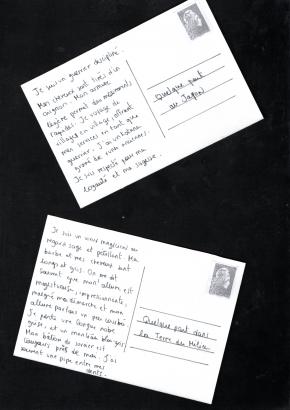 Je suis un guerrier discipliné.
Mes cheveux sont tirés d'un
chignon. Mon armure
légère permet des mouvements
rapides. Je voyage de
villages en village, offrant
mes services en tant que
guerrier. J'ai un katana
gravé de runes anciennes.
Je suis respecté pour ma
loyauté et ma sagesse.
Quelque part
au Japon
Je suis un vieux magicien au
regard sage et pétillant. Ma
barbe et mes cheveux sont
longs et gris. On me dit
souvent que mon allure est
majestueuse, impressionnante,
malgré ma démarche et mon
allure parfois un peu courbée
Je porte une longue robe
grise, et un manteau bleu gris
Mon bâton de sorcier est
toujours près de moi. J'ai
souvent une pipe entre mes
dents.
Quelque part dans
la Terre du Milieu